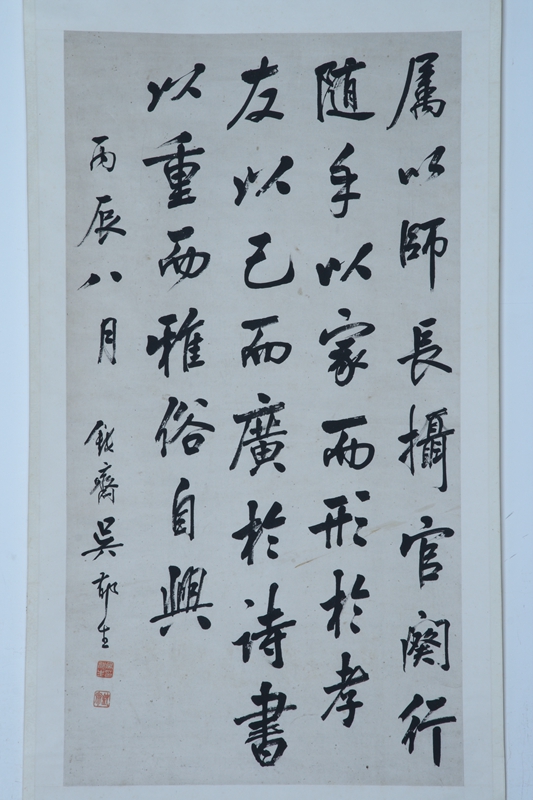 属以師長攝官闕行
随手以家而形於孝
友以己而廣於詩書
以重而雅俗自興
丙辰八月 鈍齋吳郁生